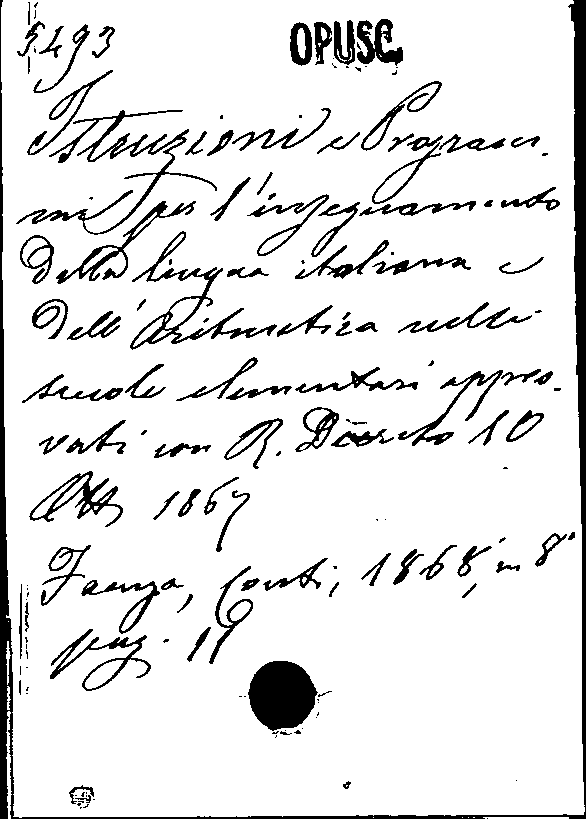 5493 OPUSC.
Istruzioni e Program-
mi per l'insegnamento
della lingua italiana e
dell'Aritmetica nelle
scuole elementari appro-
vati con R. Decreto 10
Ott 1867
Faenza, Conti, 1868, in 8°
pag. 19